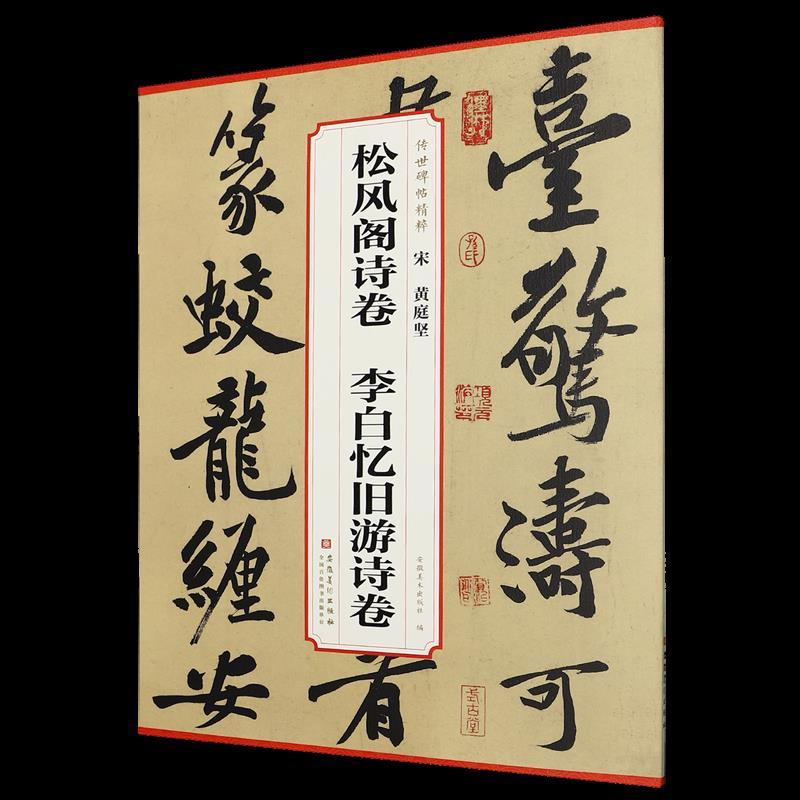 臺驚濤可
者
篆蛟龍纏安
传世碑帖精粹
宋 黄庭坚
松风阁诗卷 李白忆旧游诗卷
安徽美术出版社 编
安徽美术出版社
全国百佳图书出版单位